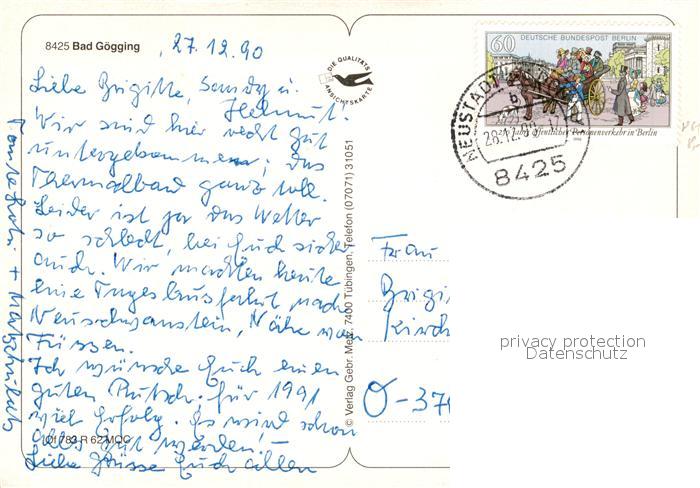 8425 Bad Gögging
27.12.90
Liebe Brigitte, Sandy u.
Helmut.
Wir sind hier recht gut
untergekommen, das
Thermalbad ganz toll.
Leider ist ja das Wetter
so schlecht, bei Euch sicher
auch. Wir machten heute
eine Tagesbusfahrt nach
Neuschwanstein, Nähe von
Füssen.
Ich wünsche Euch einen
guten Rutsch. für 1991
viel Erfolg. Es wird schon
alles gut werden. –
Liebe Grüsse Euch allen
Tante
+
101 783 R 62 MQC
DIE QUALITÄTS
ANSICHTSKARTE
© Verlag Gebr. Metz, 7400 Tübingen, Telefon (07071) 31051
60 DEUTSCHE BUNDESPOST BERLIN
250 Jahre öffentlicher Personenverkehr in Berlin
NEUSTADT
b
28.12.90
8425
Frau
Brigi
Kirch
O-37
privacy protection
Datenschutz